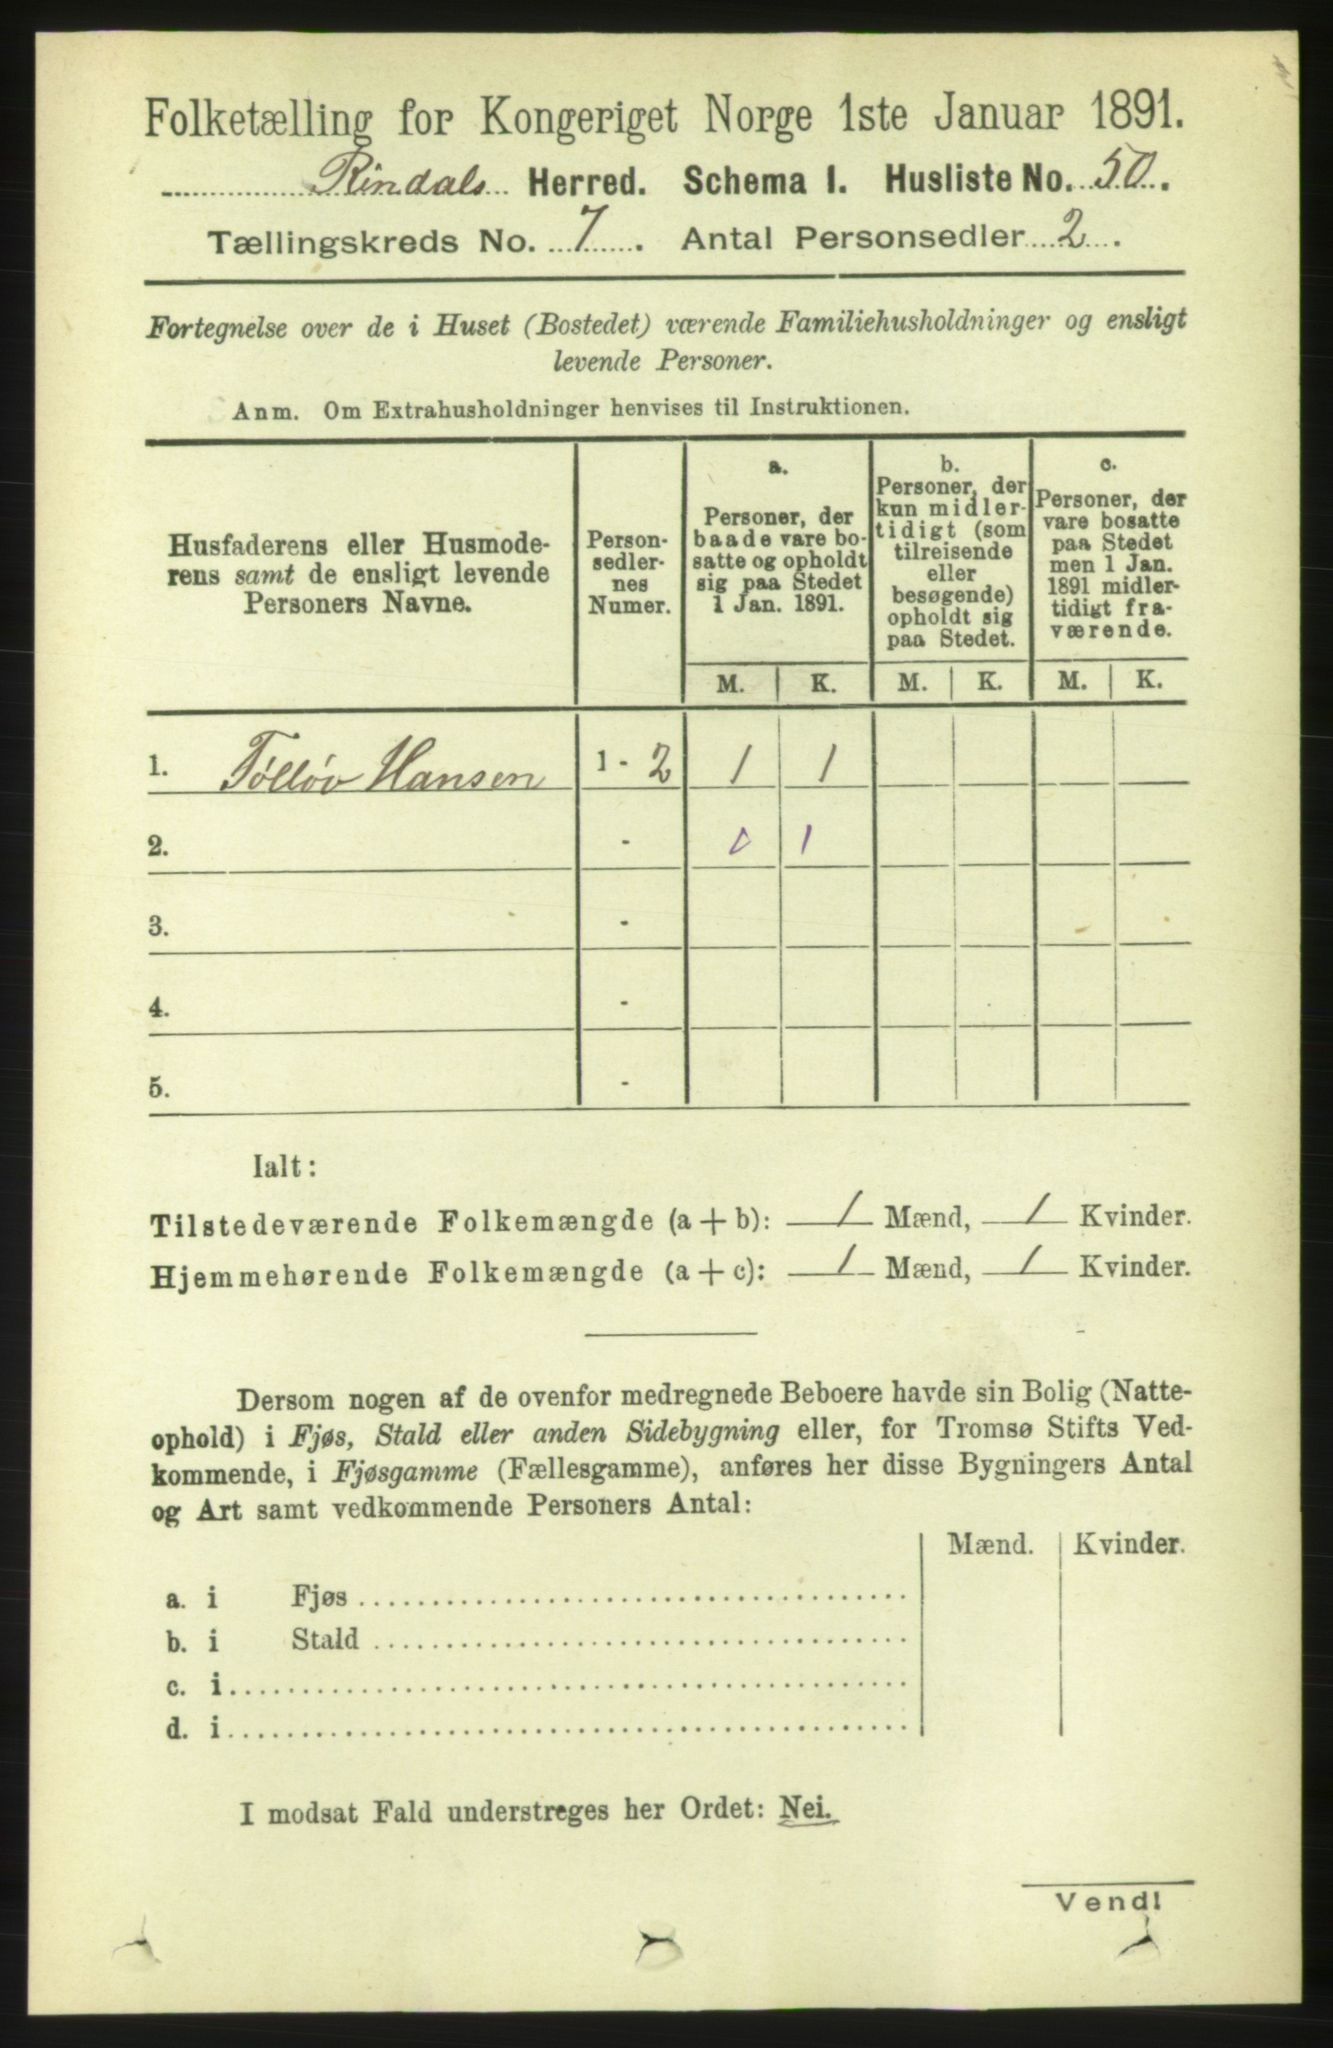 Folketælling for Kongeriget Norge 1ste Januar 1891.
Rindals Herred. Schema I. Husliste No. 50.
Tællingskreds No. 7. Antal Personsedler 2.
Fortegnelse over de i Huset (Bostedet) værende Familiehusholdninger og ensligt
levende Personer.
Anm. Om Extrahusholdninger henvises til Instruktionen.
Husfaderens eller Husmode-
rens samt de ensligt levende
Personers Navne.
Person-
sedler-
nes
Numer.
a.
Personer, der
baade vare bo-
satte og opholdt
sig paa Stedet
1 Jan. 1891.
b.
Personer, der
kun midler-
tidigt (som
tilreisende
eller
besøgende)
opholdt sig
paa Stedet.
c.
Personer, der
vare bosatte
paa Stedet
men 1 Jan.
1891 midler-
tidigt fra-
værende.
M. K. M. K. M. K.
1. Tølløv Hansen 1 - 2 1 1
2. - 0 1
3. -
4. -
5. -
Ialt:
Tilstedeværende Folkemængde (a + b): 1 Mænd, 1 Kvinder.
Hjemmehørende Folkemængde (a + c): 1 Mænd, 1 Kvinder.
Dersom nogen af de ovenfor medregnede Beboere havde sin Bolig (Natte-
ophold) i Fjøs, Stald eller anden Sidebygning eller, for Tromsø Stifts Ved-
kommende, i Fjøsgamme (Fællesgamme), anføres her disse Bygningers Antal
og Art samt vedkommende Personers Antal:
Mænd. Kvinder.
a. i Fjøs
b. i Stald
c. i
d. i
I modsat Fald understreges her Ordet: Nei.
Vend!